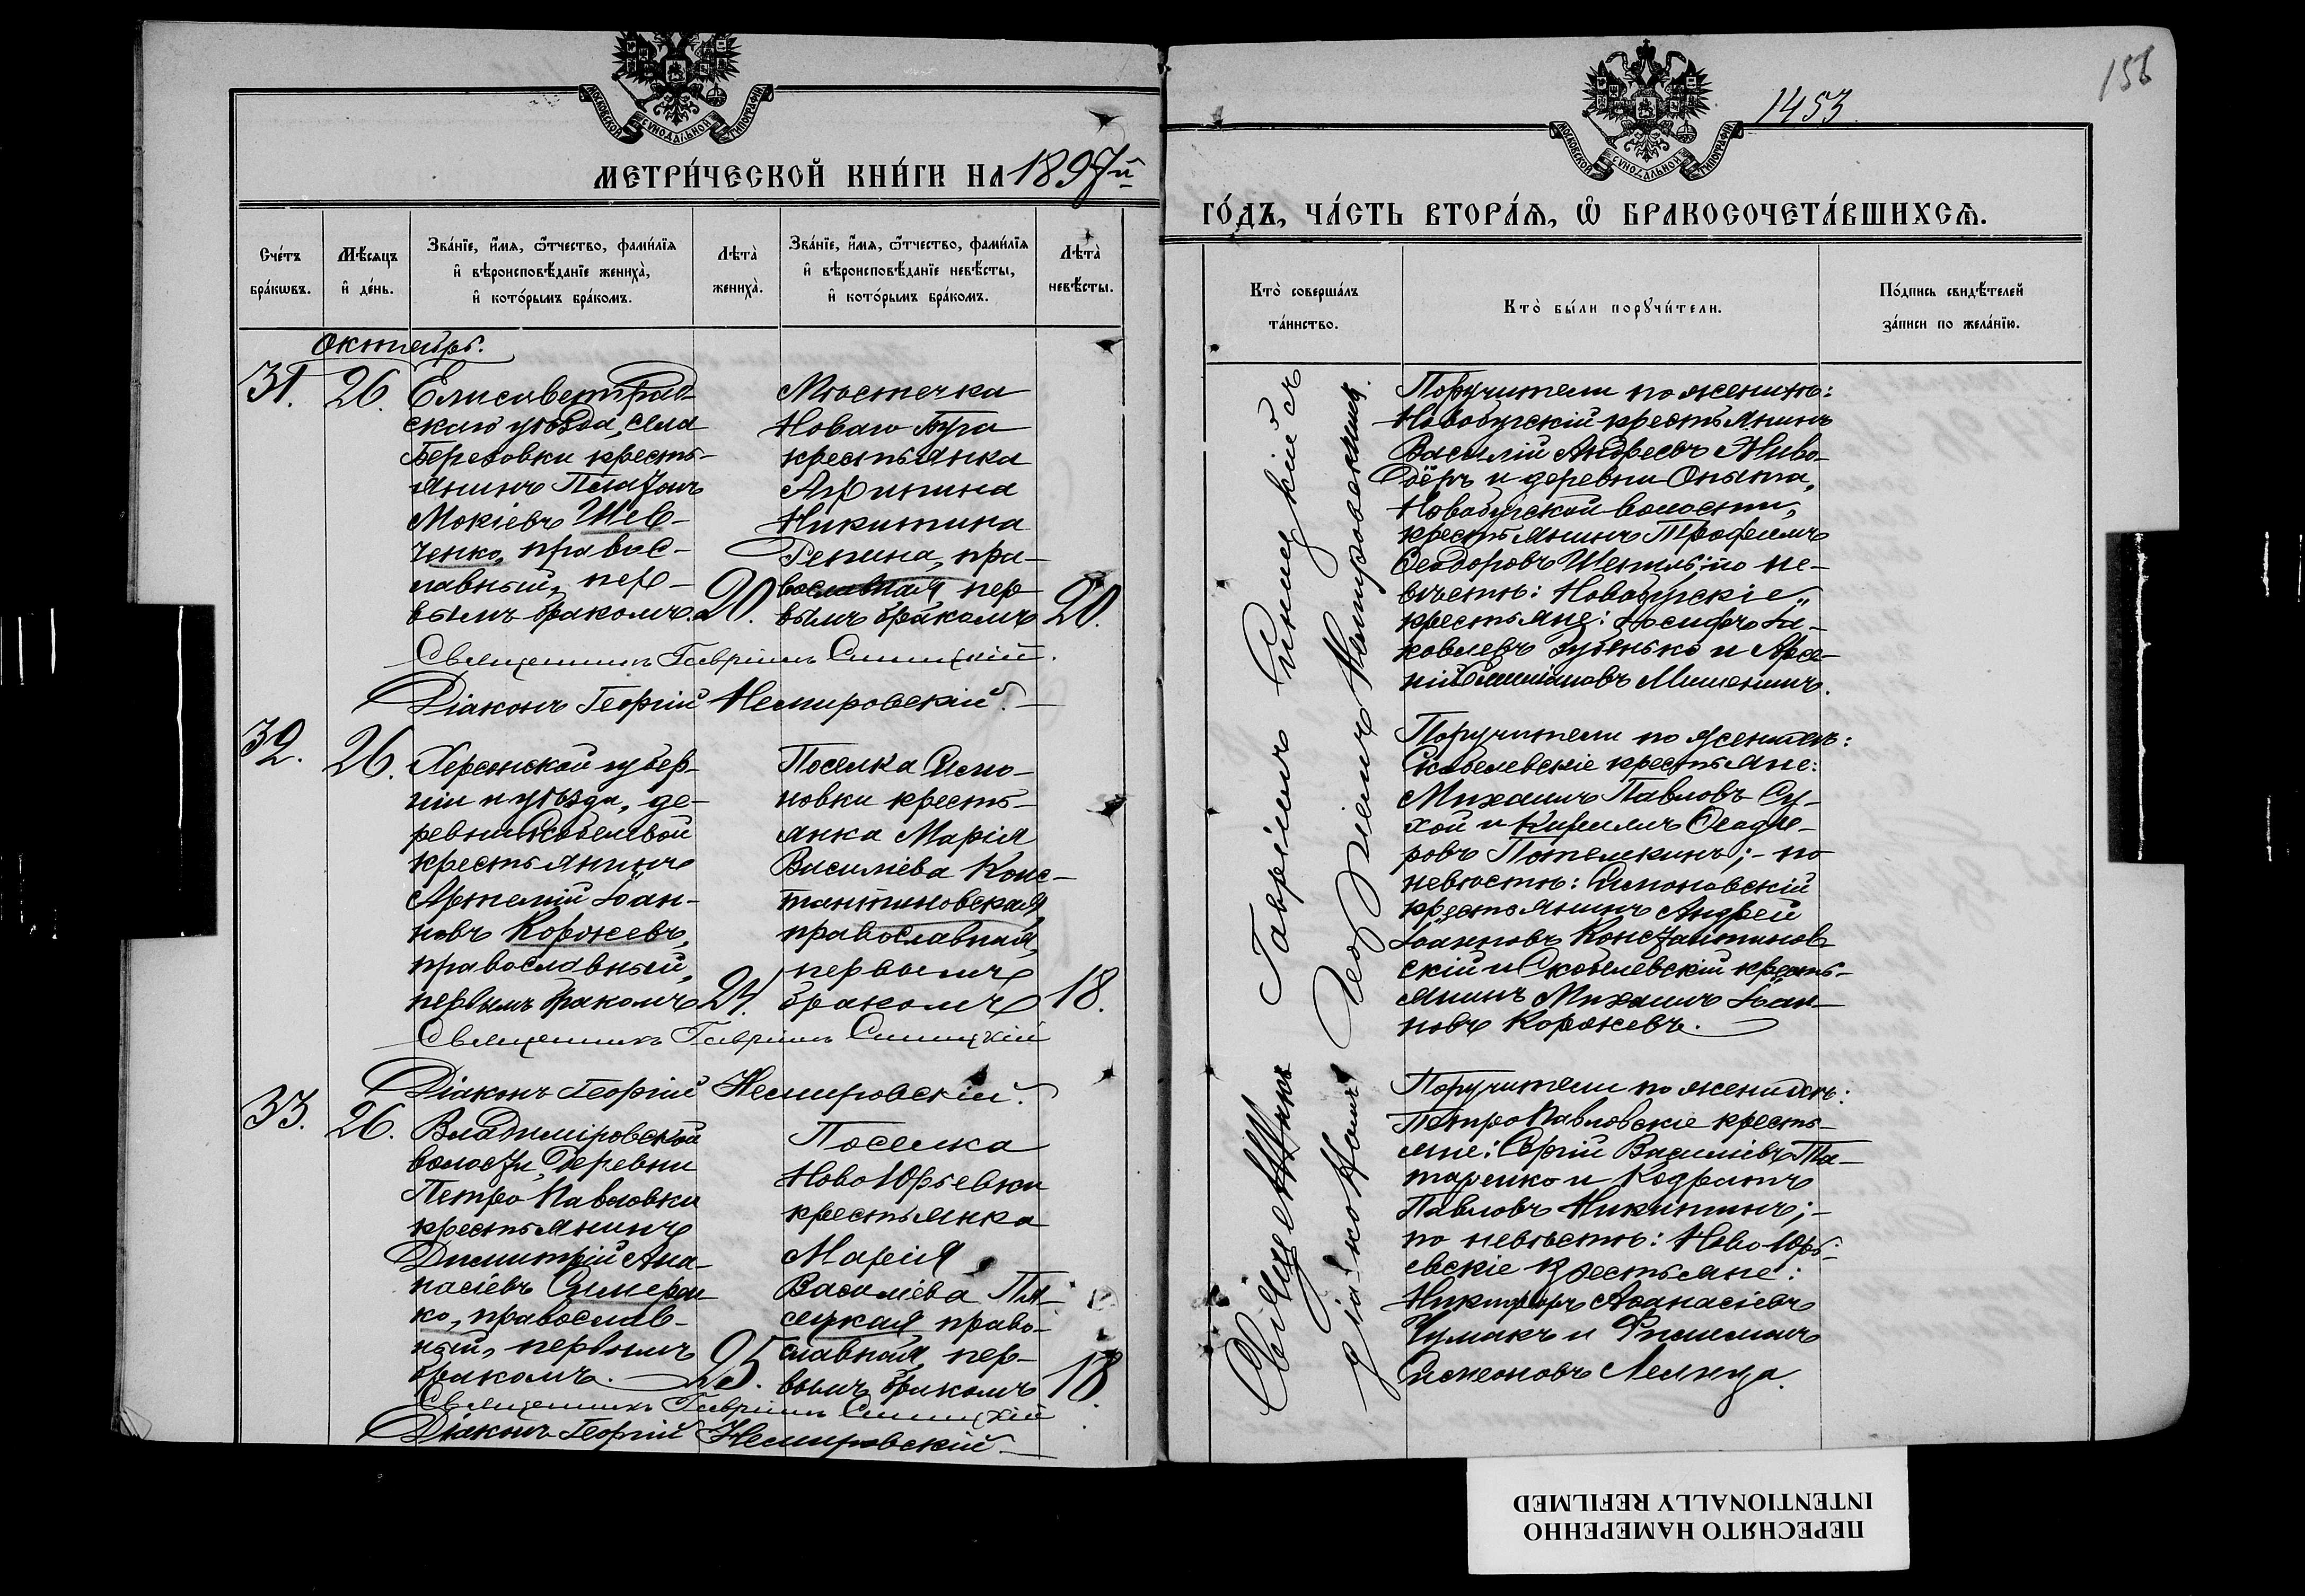 МОСКОВСКОЙ СѴНОДАЛЬНОЙ ТИПОГРАФІИ
МЕТРИ́ЧЕСКОЙ КНИ́ГИ НА 1897й
Сче́тъ бра́кѡвъ.
Мѣ́сяцъ и҆ де́нь.
Зва́нїе, и҆́мѧ, ѻ҆́тчество, фами́лїѧ
и҆ вѣроисповѣ́данїе жениха̀,
и҆ кото́рымъ бра́комъ.
Лѣта̀ жениха̀.
Зва́нїе, и҆́мѧ, ѻ҆́тчество, фами́лїѧ
и҆ вѣроисповѣ́данїе невѣ́сты,
и҆ кото́рымъ бра́комъ.
Лѣта̀ невѣ́сты.
Октябрь.
31.
26.
Елисаветград-
скаго уѣзда, села
Березовки кресть-
янинъ Платонъ
Мокіевъ Шев-
ченко, правос-
лавный, пер-
вымъ бракомъ.
20.
Мѣстечка
Новаго Буга
крестьянка
Агрипина
Никитина
Репина, пра-
вославная, пер
вымъ бракомъ
20.
Священникъ Гавріилъ Синицкій.
Діаконъ Георгій Немировскій.
32.
26.
Херсонской губер-
ніи и уѣзда, де-
ревни Скобелевой
крестьянинъ
Артемій Іоан-
новъ Корожевъ,
православный,
первымъ бракомъ
24.
Поселка Симо-
новки кресть-
янка Марія
Василіева Конс-
тантиновская
православная,
первымъ
бракомъ
18.
Священникъ Гавріилъ Синицкій
Діаконъ Георгій Немировскій.
33.
26.
Владиміровской
волости, деревни
Петро Павловки
крестьянинъ
Димитрій Ана-
насіевъ
ко, православ-
ный, первымъ
бракомъ.
25.
Поселка
Ново Юрьевки
крестьянка
Марія
Василіева Пя-
сецкая право-
славная, пер-
вымъ бракомъ
18.
Священникъ Гавріилъ Синицкій
Діаконъ Георгій Немировскій
156
1453.
МОСКОВСКОЙ СѴНОДАЛЬНОЙ ТИПОГРАФІИ
ГО́ДЪ, ЧА́СТЬ ВТОРА́Ѧ, Ѡ҆ БРАКОСОЧЕТА́ВШИХСѦ.
Кто̀ соверша́лъ
та́инство.
Кто̀ бы́ли порꙋчи́тели.
По́дпись свидѣ́телей
за́писи по жела́нїю.
Священникъ Гавріилъ Синицкій съ
діакономъ Георгіемъ Немировскимъ.
Поручители по женихѣ:
Новобугскій крестьянинъ
Василій Андреевъ Живо-
дёръ и деревни Опыта,
Новобугской волости,
крестьянинъ Трофимъ
Ѳеодоровъ по не-
вѣстѣ: Новобугскіе
крестьяне: Іосифъ Іа-
ковлевъ и Арсе-
ній
Поручители по женихѣ:
Скобелевскіе крестьяне:
Михаилъ Павловъ Су-
хой и Кириллъ Ѳеодо-
ровъ Потемкинъ;- по
невѣстѣ: Симоновскій
крестьянинъ Андрей
Іоанновъ Константинов
скій и Скобелевскій кресть-
янинъ Михаилъ Іоан-
новъ Корожевъ.
Поручители по женихѣ:
Петро Павловскіе кресть-
яне: Сергій Василіевъ Та-
таренко и Кодратъ
Павловъ Никитинъ;-
по невѣстѣ: Ново Юрь-
евскіе крестьяне:
Никифоръ Аѳанасіевъ
Чумакъ и Филимонъ
Симеоновъ
ПЕРЕСНЯТО НАМЕРЕННО
INTENTIONALLY REFILMED